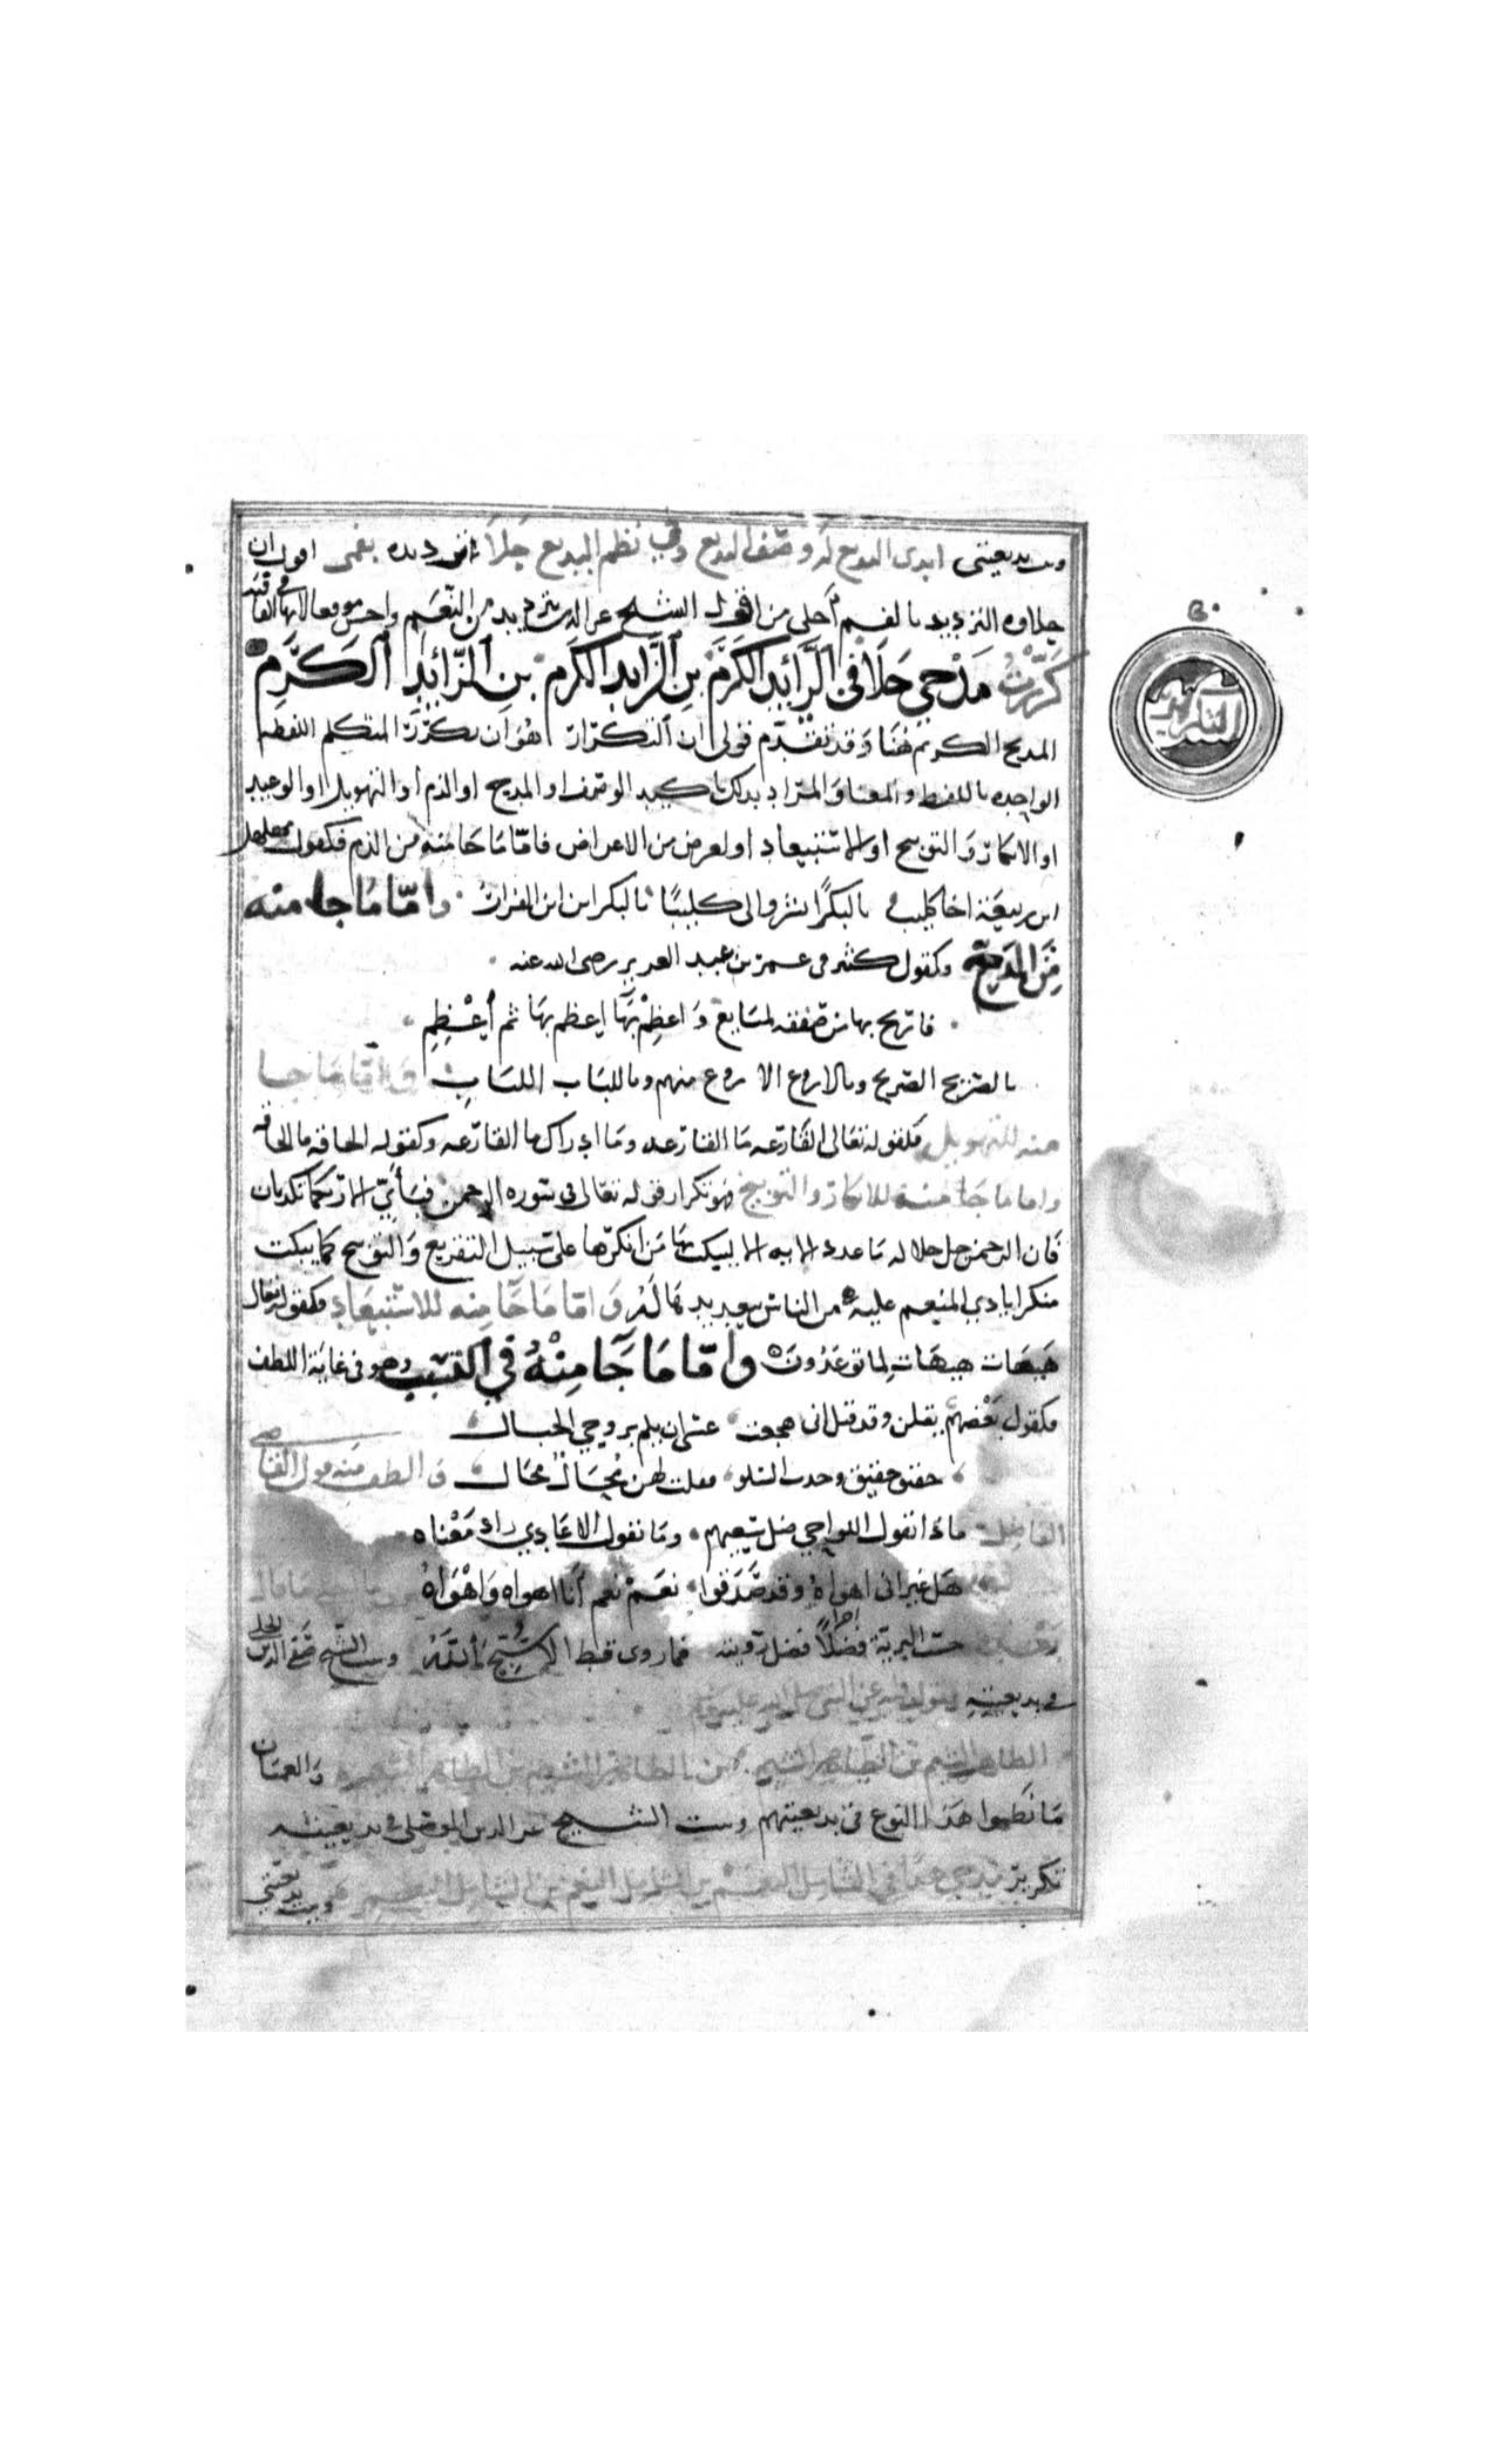 وبيت بديعيتي ابدى البديع له وصف البديع وفي نظم البديع حلا ترديده بفمي اقول ان
حلاوة الترديد بالفم أحلى من قول الشيخ عز الدين ترديد من النعم واحسن موقعا لانها في
كررت مدحي حلا في الزائد الكرم بن الزايد الكرم بن الزائد الكرم
المديح الكريم هنا وقد تقدم قولي ان التكرار هو ان يكرر المتكلم اللفظه
الواحده باللفظ والمعنا والمراد بذلك تاكيد الوصف او المديح او الذم او التهويل او الوعيد
او الانكار والتوبيخ او الاستبعاد او لغرض من الاغراض فاما ما جا منه من الذم فكقول مهلهل
ابن ربيعة اخا كليب يالبكرًا انشروا لي كليبًا يالبكر اين اين الفرار وامّا مَا جا منه
مِن المديح وكقول كثير في عمر بن عبد العزيز رضي الله عنه
فاربح بها من صفقة لمبايع وَاعظِمْ بَها اعظم بهَا ثم أعْظِمِ
بالصريح الصريح وبالاروع الاروع منهم وباللباب اللباب وَامّا مَا جا
منه للتهويل فكقوله تعالى القارعه مَا القارعه ومَا ادراك ما القارعه وكقوله الحاقه ما الحاقه
واما ما جا منه للانكار والتوبيخ فهو تكرار قوله تعالى في سوره الرحمن فبأيّ الا ربكما تكذبان
فان الرحمن جل جلاله مَا عدد الايه الا ليبكت بهَا مَن انكرها على سبيل التقريع وَالتوبيخ كما يبكت
منكر ايادي المنعم عليه من الناس بتعديدها له وَامّا مَا جَا منه للاستبعَاد فكقوله تعالى
هَيهَات هيهَات لِما توعَدُونَ وامّا مَا جَا مِنْهُ في النسيب وهو في غاية اللطف
فكقول بَعْضهم يقلن وقد قيل اني هجعت عسى ان يلم بروحي الخيال
حقيق حقيق وجدت السلو فقلت لهن مُحَال مُحَال والطف منه قول القاضي
الفاضل ماذا تقول اللواحي ضل سعيهم ومَا تقول الاعَادي زاد مَعْناه
هَل غير اني اهواهُ وقد صَدَقوا نعَمْ نعم أنا اهواه وَاهْوَاهُ
وبيت الشيخ صفي الدين الحلي
في بديعيته يقول فيه عن النبي صلى الله عليه وسلم
الطاهر الشيم بن الطاهر الشيم بن الطاهر الشيم بن الطاهر الشيم وَالعميَان
مَا نَظموا هَذا النوع في بديعيتهم وبيت الشيخ عز الدين الموصلي في بديعيته
تكرير مدحي في الشامل النعم بن الشامل النعم بن الشامل النعم وبيت بديعيتي
التكرير